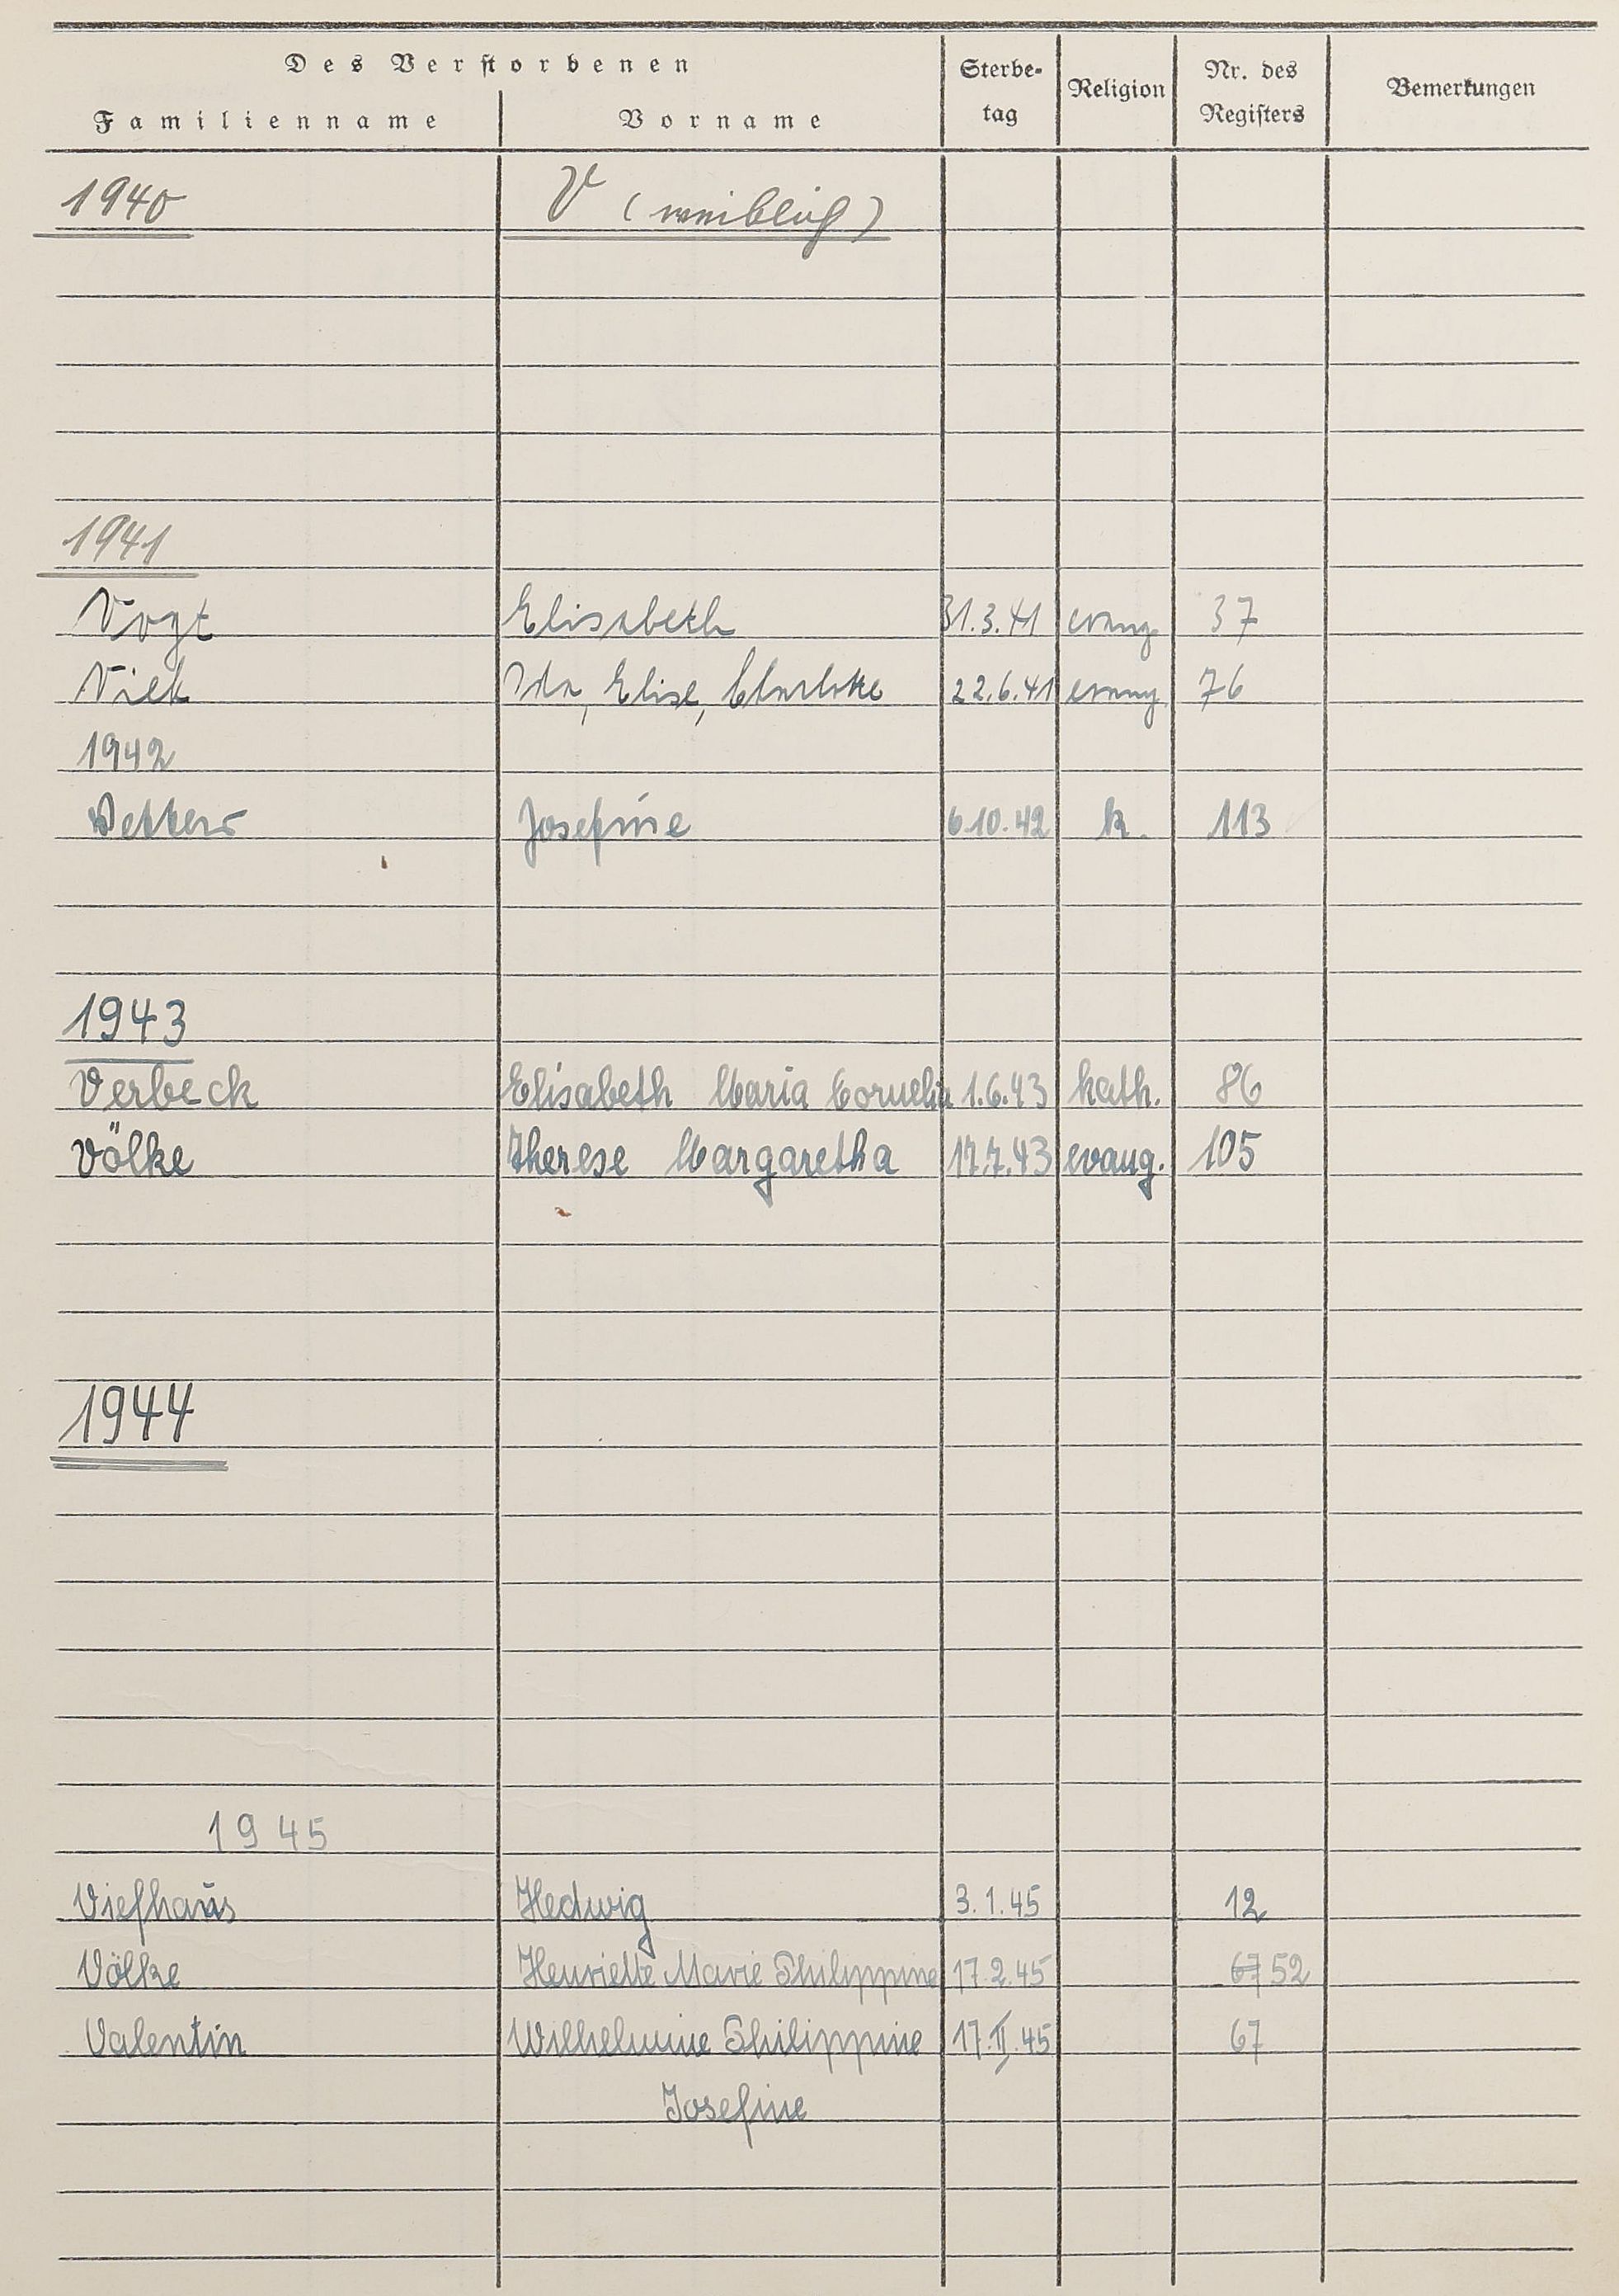 Des Verstorbenen
Familienname Vorname Sterbe-tag Religion Nr. des Registers Bemerkungen
1940 V (weiblich)
1941
Vogt Elisabeth 31.3.41 evang 37
Viek Ida, Elise, Charlotte 22.6.41 evang 76
1942
Vetters Josefine 6.10.42 k. 113
1943
Verbeck Elisabeth Maria Cornelia 1.6.43 kath. 86
Völke Therese Margaretha 17.7.43 evang. 105
1944
1945
Viefhaus Hedwig 3.1.45 12
Völke Henriette Marie Philippine 17.2.45 67 52
Valentin Wilhelmine Philippine 17.II.45 67
Josefine